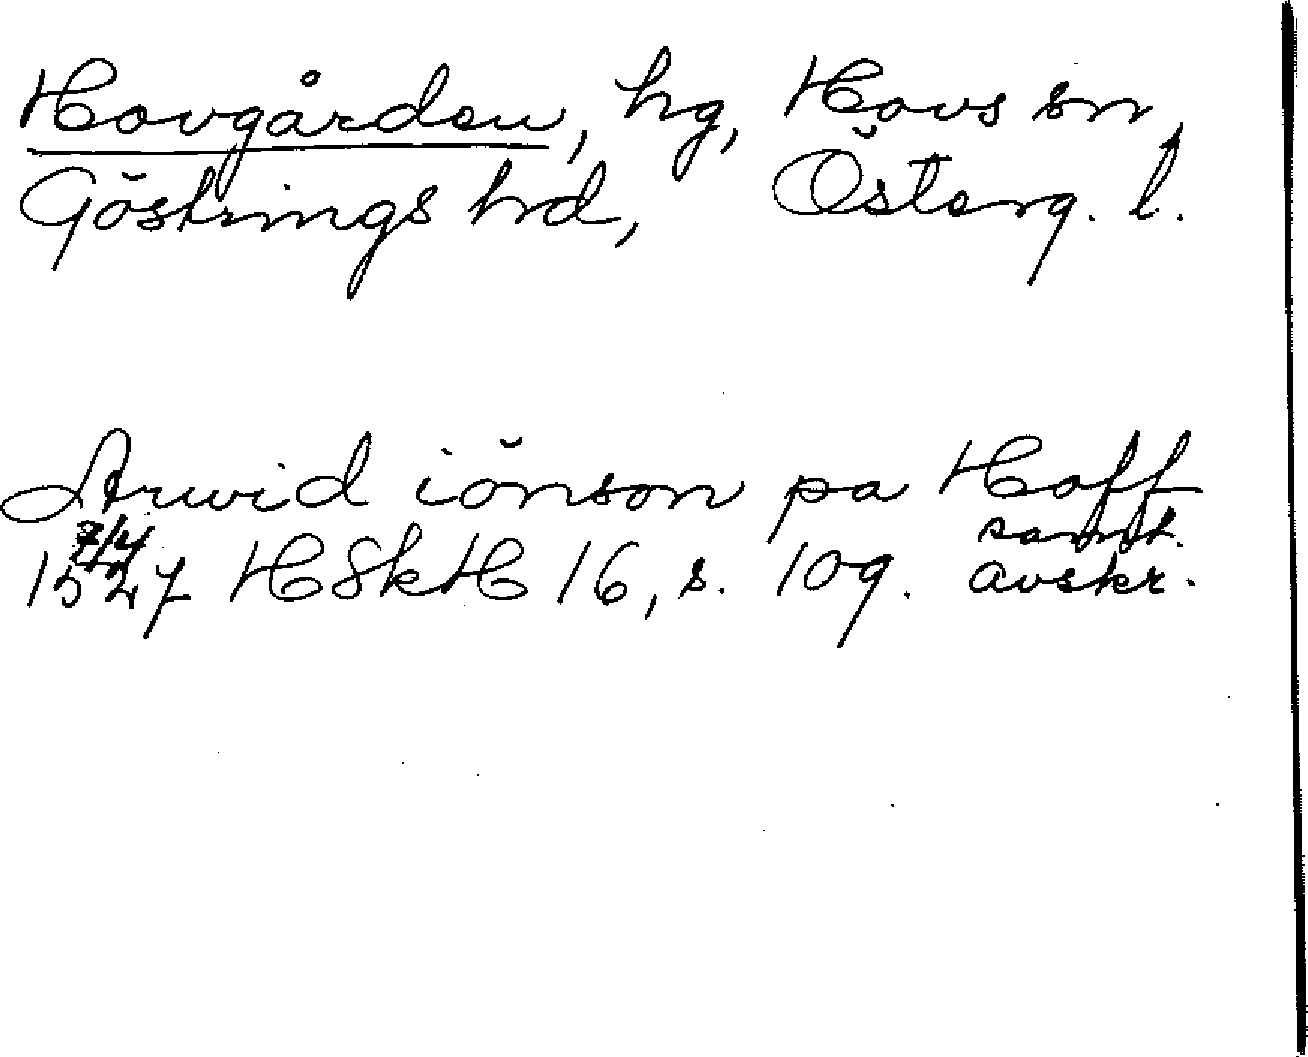 Hovgården, hg, Hovs sn,
Göstrings hd, Österg. l.
Arwid iönson pa Hoff
1527 7/4 HSkH 16, s. 109. samt. avskr.